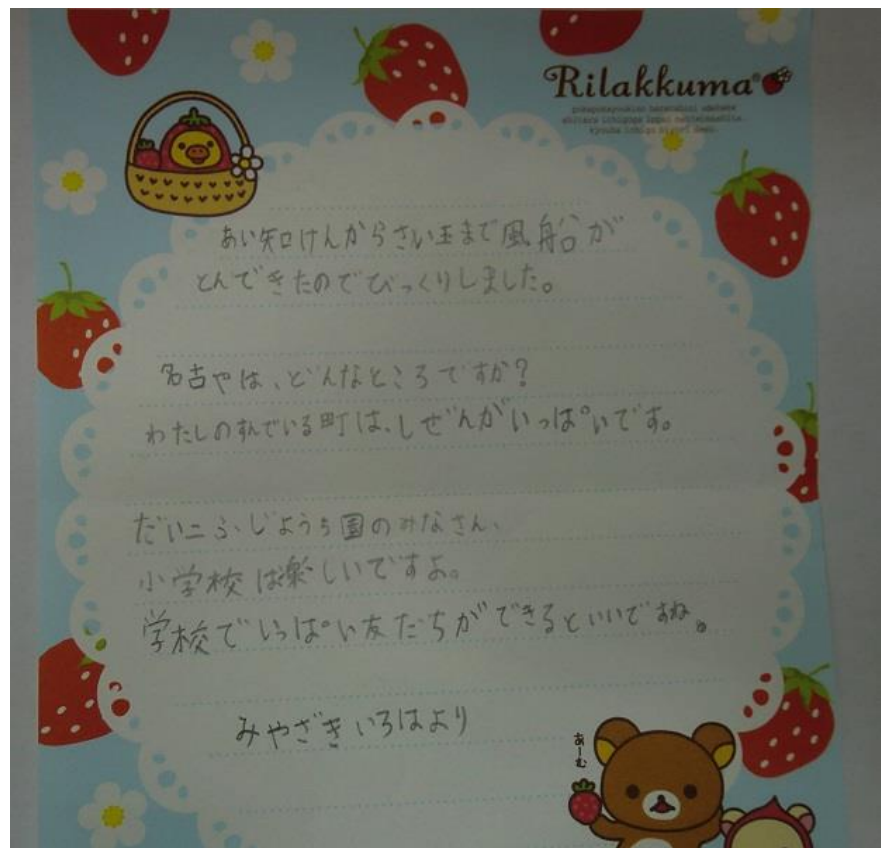 Rilakkuma
あい知けんからさい玉まで風船が
とんできたのでびっくりしました。
名古やは、どんなところですか?
わたしのすんでいる町は、しぜんがいっぱいです。
だい二ふじようち園のみなさん、
小学校は楽しいですよ。
学校でいっぱい友だちができるといいですね。
みやざきいろはより
あーむ